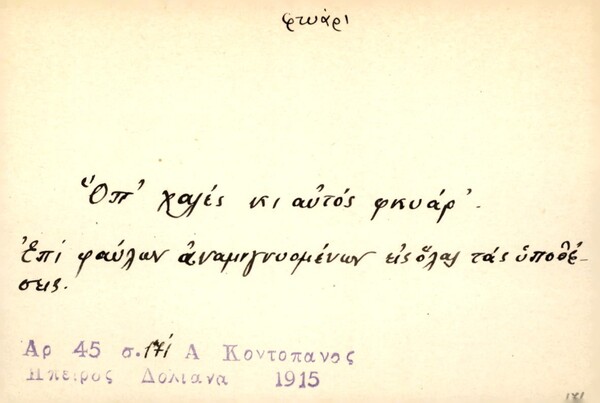 φτυάρι
Ὅπ' χαλές κι αὐτός φκυάρ'.
Ἐπί φαύλων ἀναμιγνυομένων εἰς ὅλας τάς ὑποθέ-
σεις.
Αρ 45 σ. 171 Α Κοντοπανος
Ηπειρος Δολιανα 1915
171